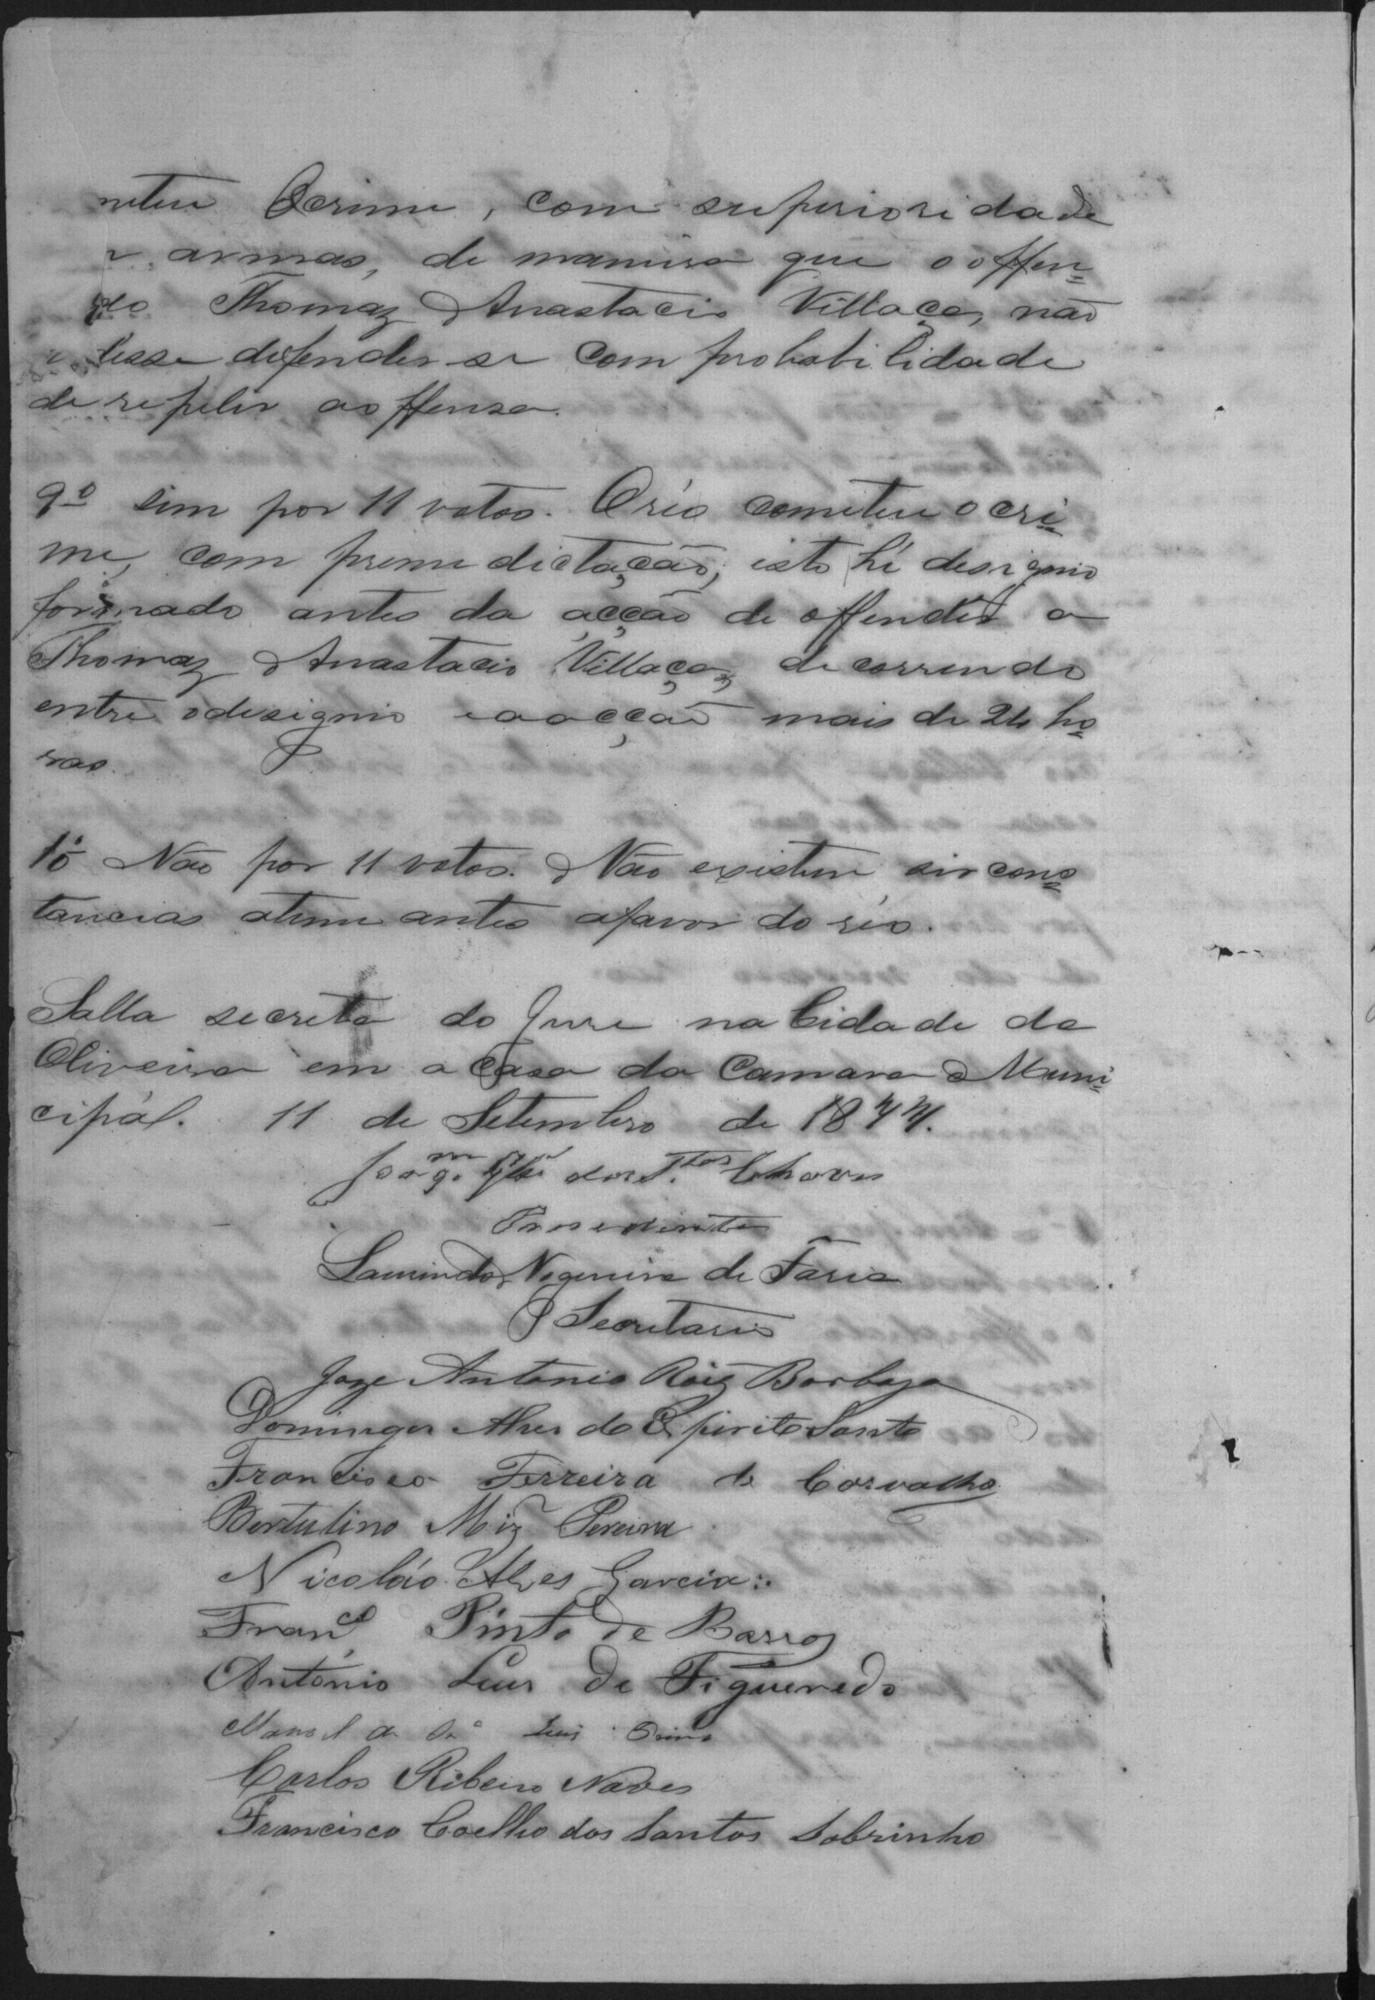 meteu Ocrime, com superioridade
armas, de maneira que o offen=
dido Thomaz Anastacio Villaça, não
desse defender-se com probabilidade
de repelir aoffensa.
9º sim por 11 votos. Oréo cometeu o cri=
me, com premedictação, isto hé designio
formado antes da acção de offender a
Thomaz Anastacio Villaça, decorrendo
entre odesignio eaacção mais de 24 ho=
ras.
10 Não por 11 votos. Não existem sircons=
tancias atenuantes afavor do réo.
Salla secreta do Jure na Cidade da
Oliveira em a Casa da Camara Muni=
cipál. 11 de Setembro de 1877.
Joaqm. José dos Stos. Chaves
Presedente
Laurindo Nogueira de Faria
Secretario
Joze Antonio Roiz Barboza
Domingos Alves do Espirito Santo
Francisco Ferreira de Carvalho
Bertulino Miz Pereira
Nicoláo Alves Garcia:.
Franco. Pinto de Barros
António Luis de Figueredo
Manoel da
Carlos Ribeiro Naves
Francisco Coelho dos Santos Sobrinho